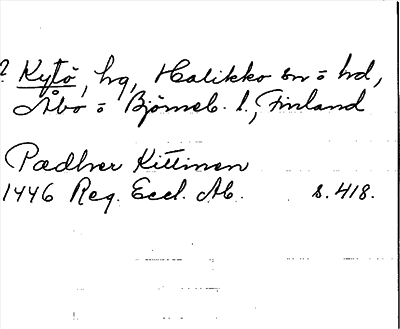 ? Kytö, hg, Halikko sn o hd,
Åbo o Björneb. l., Finland
Pædher Kittinen
1446 Reg. Eccl. Ab. s. 418.